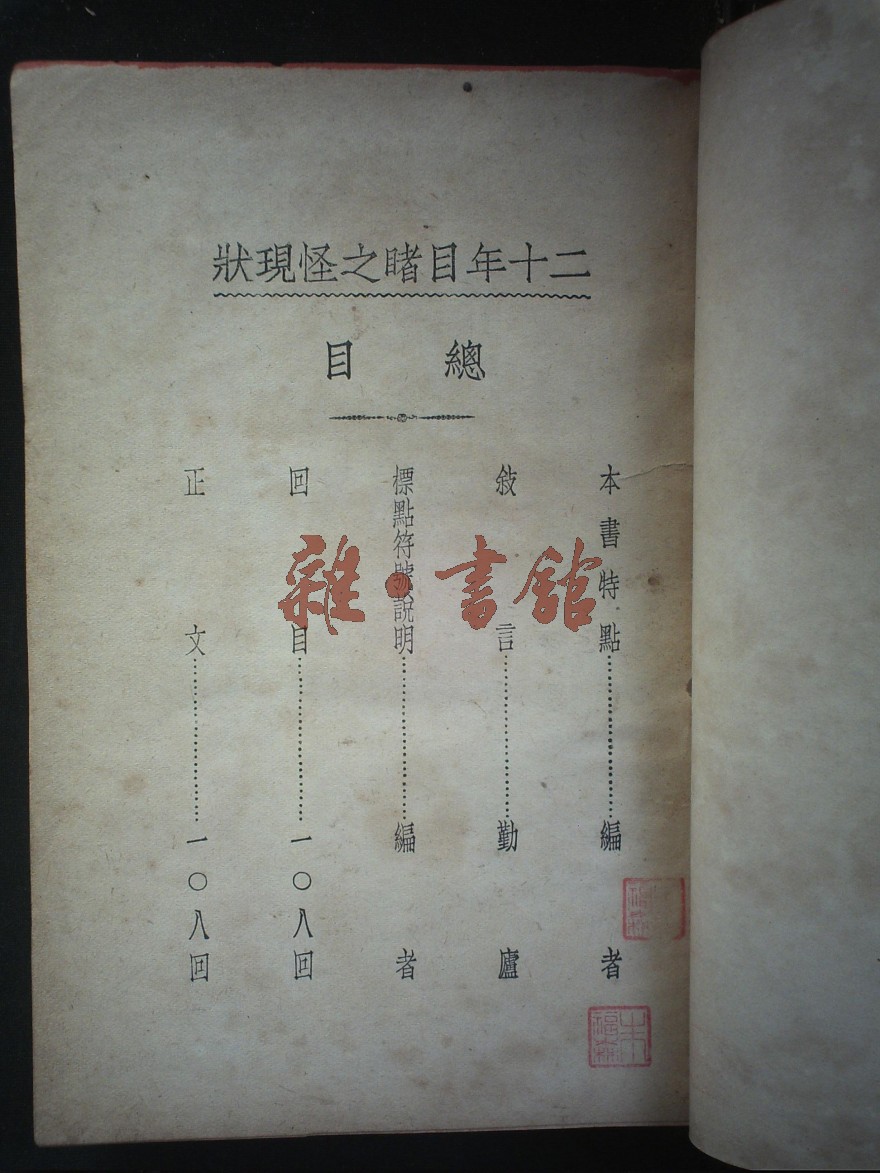 二十年目睹之怪現狀
總目
本書特點……………………編者
敍言……………………勤廬
標點符號説明……………………編者
回目……………………一〇八回
正文……………………一〇八回
雜·書館